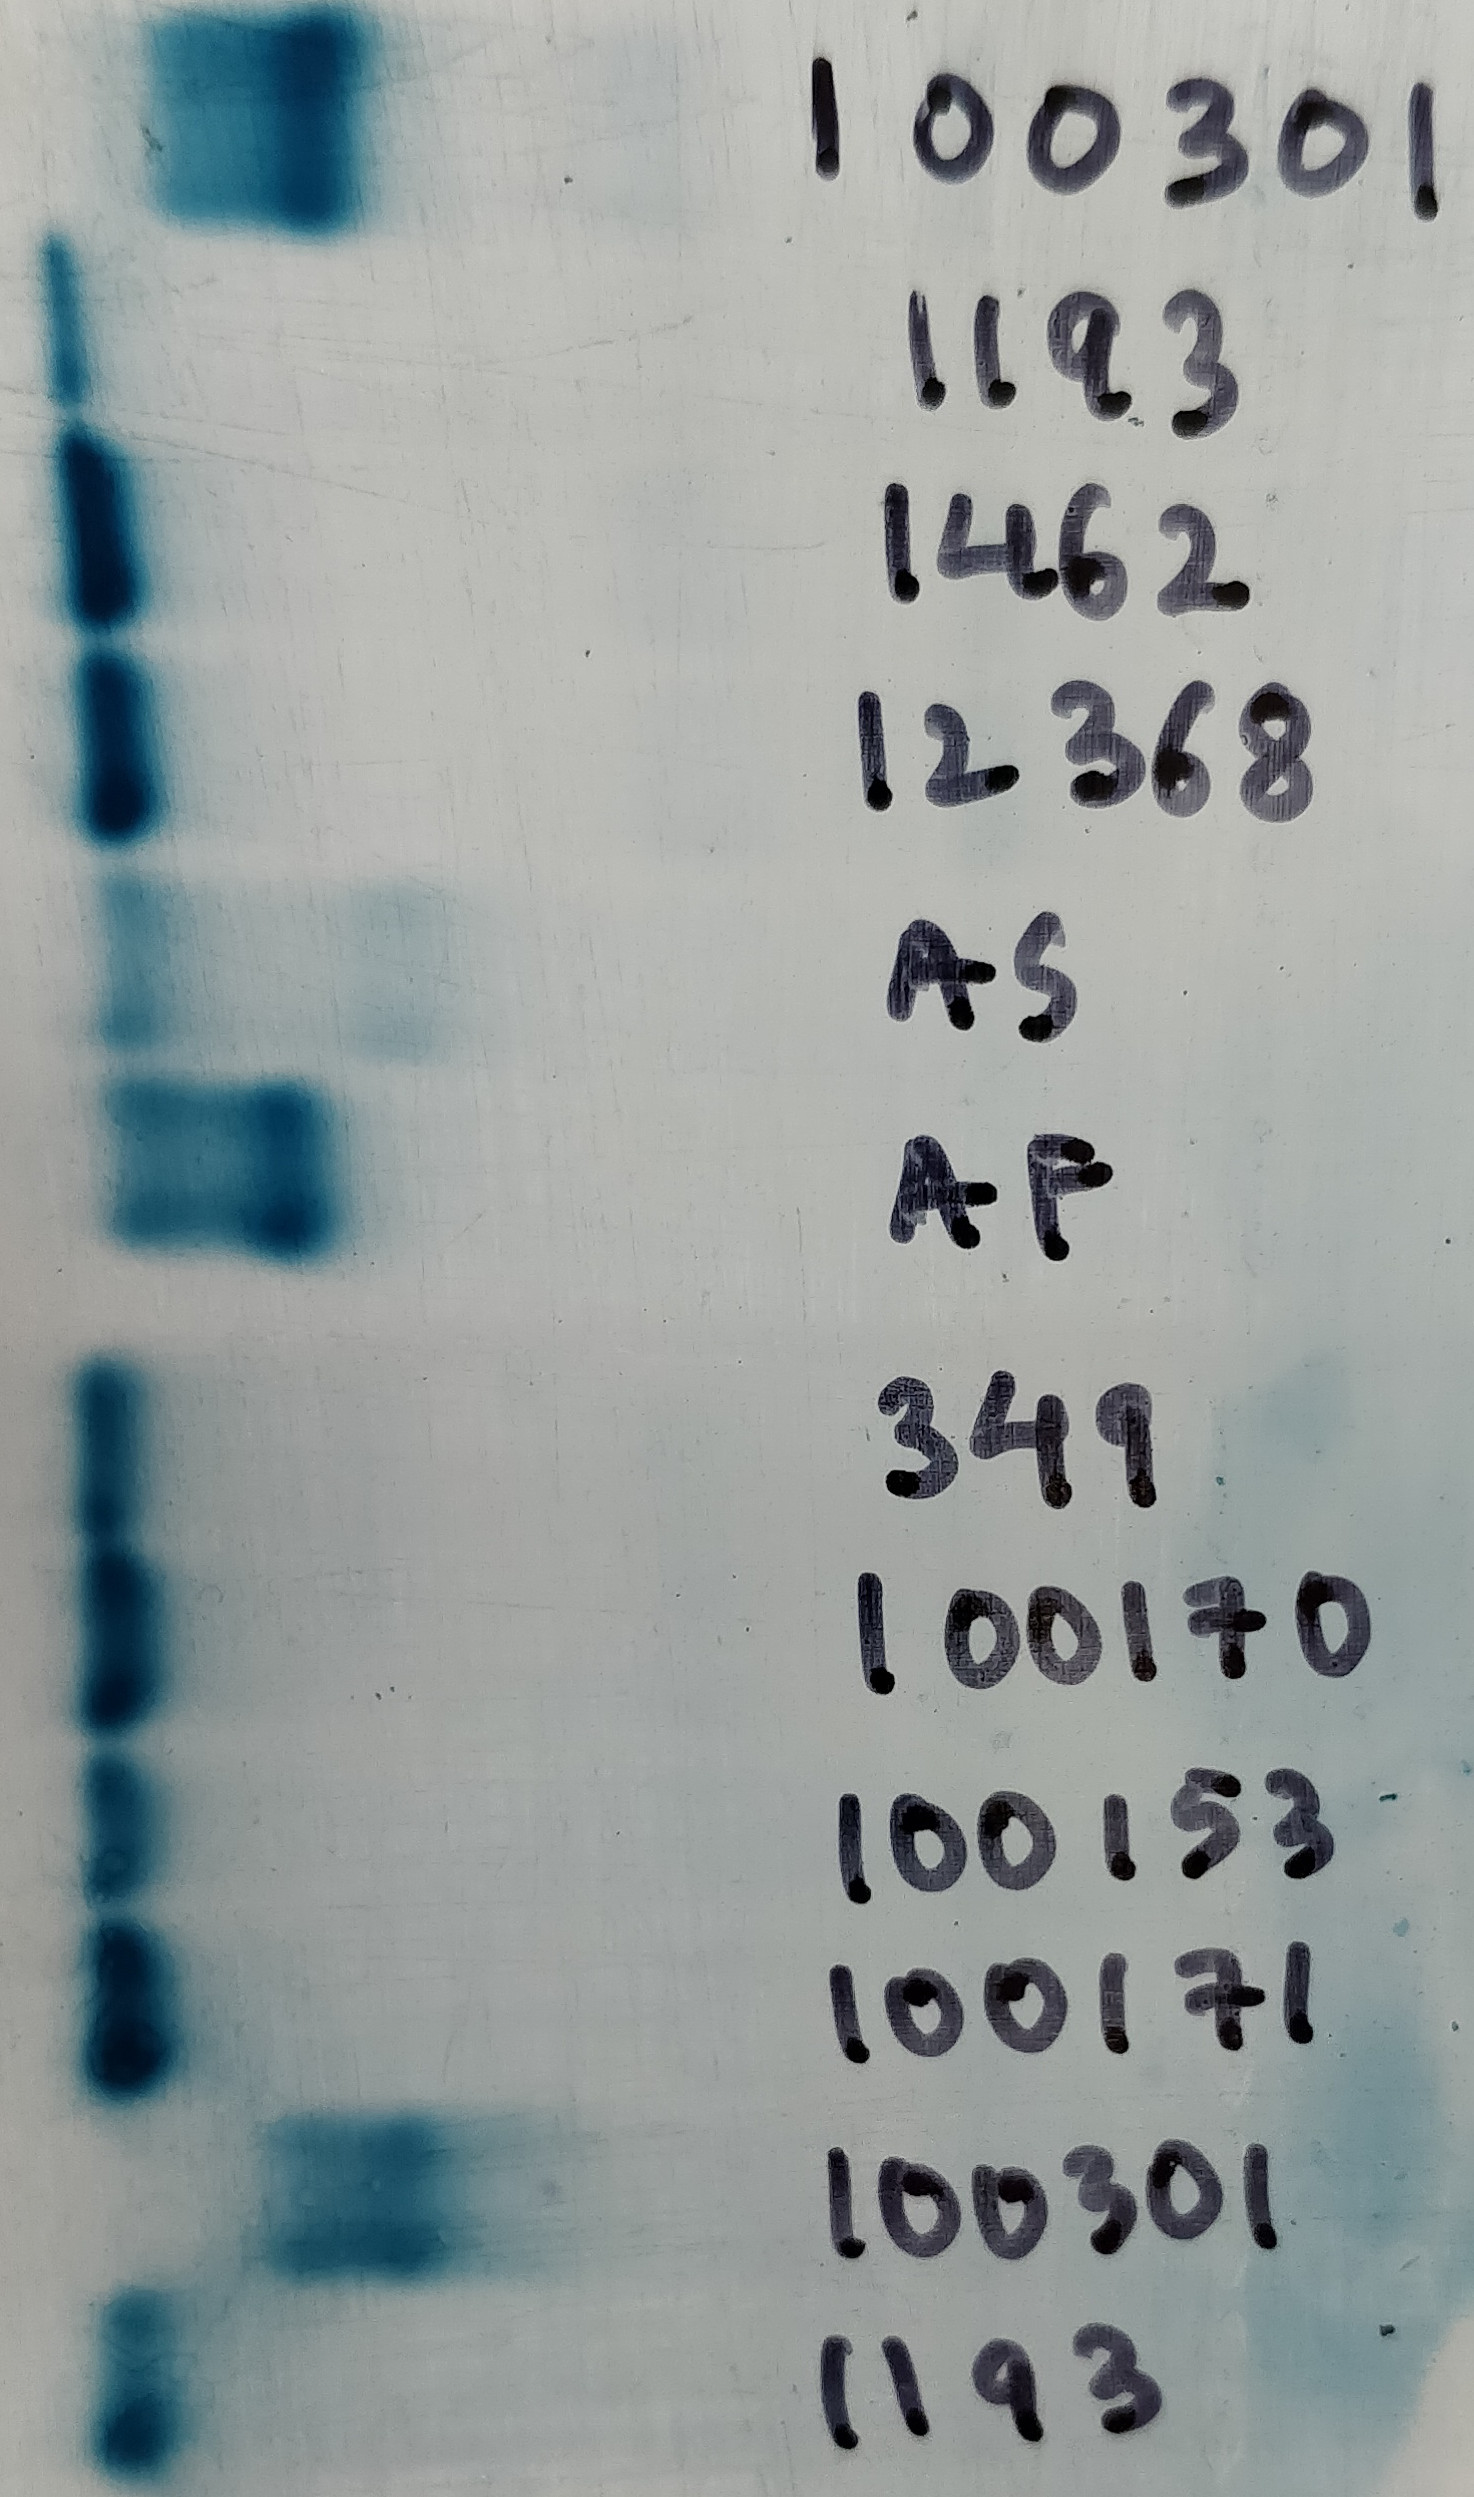 100301
1193
1462
12368
AS
AF
349
100170
100153
100171
100301
1193